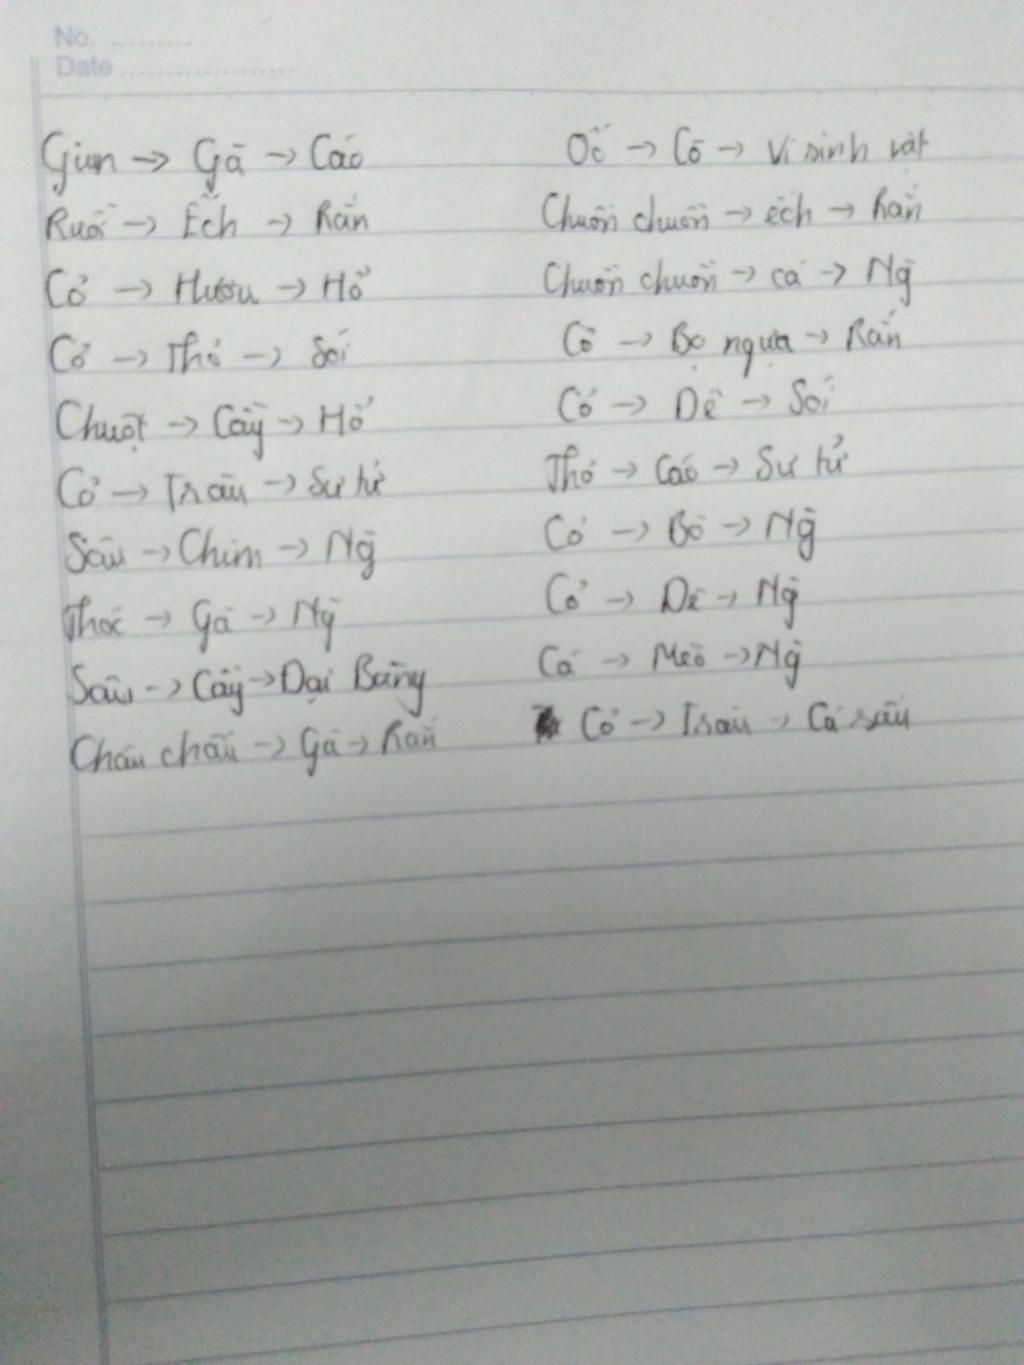 No. ..........
Date ....................
Giun → Gà → Cáo
Ruồi → Ếch → Rắn
Cỏ → Hươu → Hổ
Cỏ → Thỏ → Sói
Chuột → Cầy → Hổ
Cỏ → Trâu → Sư tử
Sâu → Chim → Ng̀
Thóc → Gà → Ng̀
Sâu → Cầy → Đại Bàng
Châu chấu → Gà → Rắn
Ốc → Cò → Vi sinh vật
Chuồn chuồn → ếch → Rắn
Chuồn chuồn → cá → Ng̀
Cỏ → Bọ ngựa → Rắn
Cỏ → Dê → Sói
Thỏ → Cáo → Sư tử
Cỏ → Bò → Ng̀
Cỏ → Dê → Ng̀
Cá → Mèo → Ng̀
Cỏ → Trâu → Cá sấu